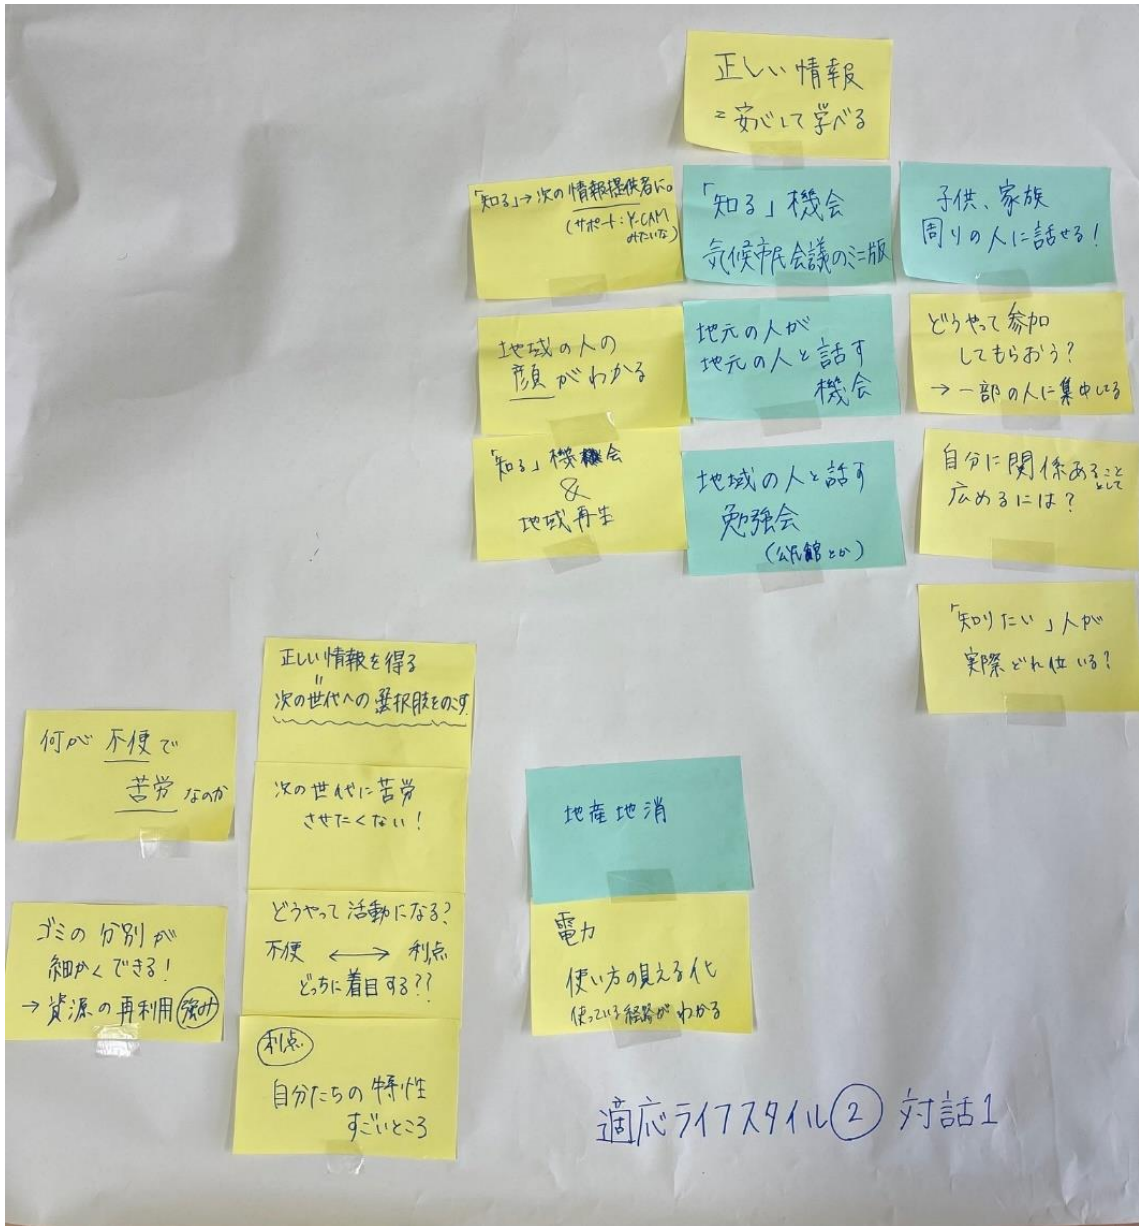 正しい情報
＝安心して学べる
「知る」→次の情報提供者に。
(サポート：Y-CAM
みたいな)
「知る」機会
気候市民会議のミニ版
子供、家族
周りの人に話せる！
地域の人の
顔がわかる
地元の人が
地元の人と話す
機会
どうやって参加
してもらおう？
→一部の人に集中してる
「知る」機会
&
地域再生
地域の人と話す
勉強会
(公民館とか)
自分に関係あること
として
広めるには？
「知りたい」人が
実際どれ位いる？
正しい情報を得る
＝
次の世代への選択肢をのこす
何が不便で
苦労なのか
次の世代に苦労
させたくない！
地産地消
ゴミの分別が
細かくできる！
→資源の再利用 強み
どうやって活動になる？
不便 ←→ 利点
どっちに着目する??
電力
使い方の見える化
使っている経路がわかる
利点
自分たちの特性
すごいところ
適応ライフスタイル② 対話1